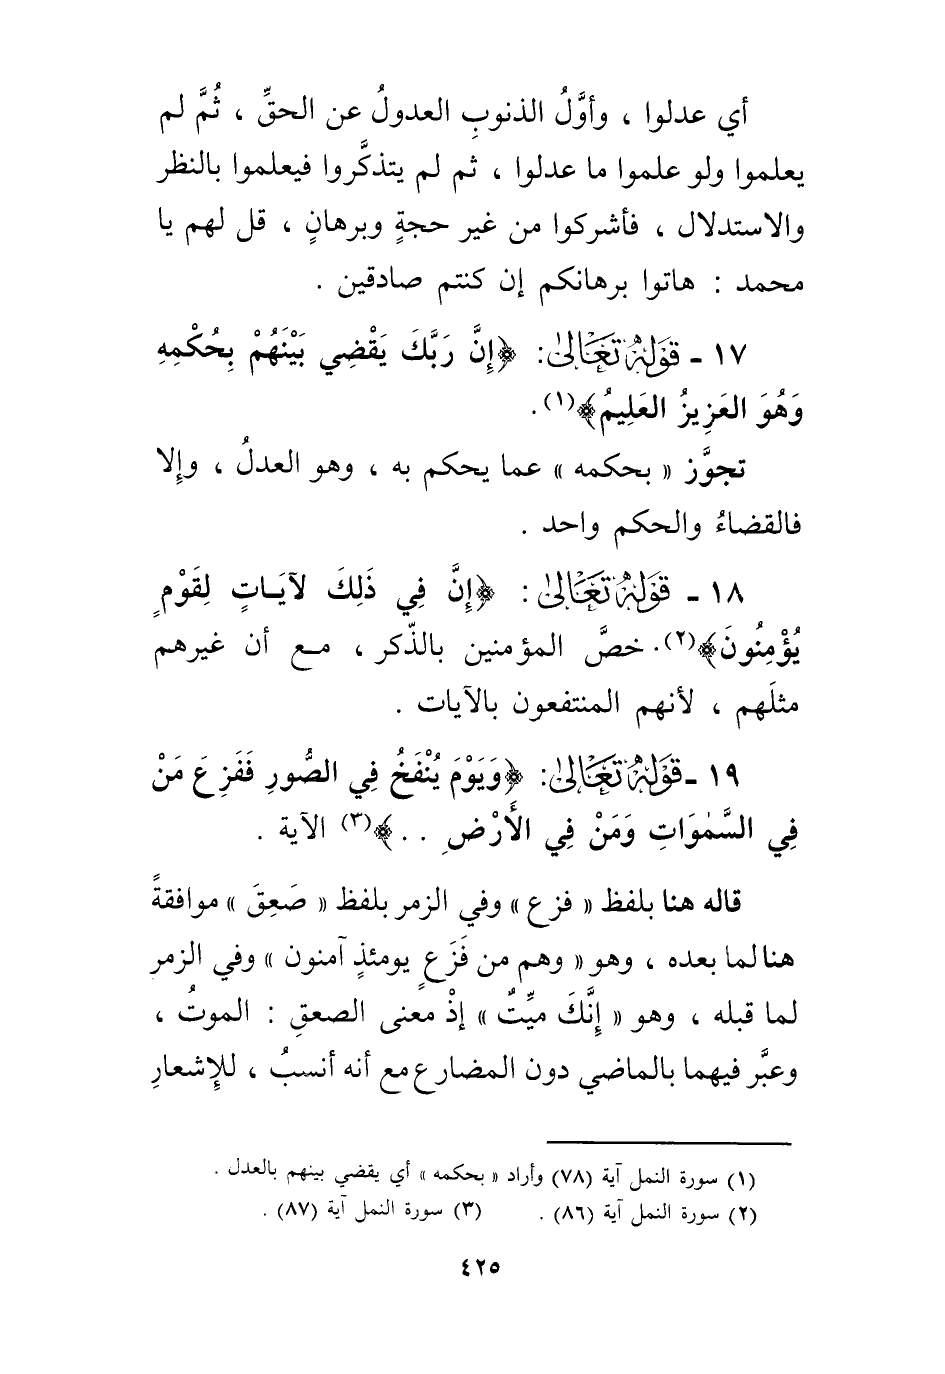 أي عدلوا ، وأوَّلُ الذنوبِ العدولُ عن الحقِّ ، ثُمَّ لم
يعلموا ولو علموا ما عدلوا ، ثم لم يتذكَّروا فيعلموا بالنظر
والاستدلال ، فأشركوا من غير حجةٍ وبرهانٍ ، قل لهم يا
محمد : هاتوا برهانكم إن كنتم صادقين .
١٧ - قَوْلُهُ تَعَالَىٰ : ﴿إِنَّ رَبَّكَ يَقْضِي بَيْنَهُمْ بِحُكْمِهِ
وَهُوَ العَزِيزُ العَلِيمُ﴾(١).
تجوَّز « بحكمه » عما يحكم به ، وهو العدلُ ، وإلا
فالقضاءُ والحكم واحد .
١٨ - قَوْلُهُ تَعَالَىٰ : ﴿إِنَّ فِي ذَلِكَ لآيَـاتٍ لِقَوْمٍ
يُؤْمِنُونَ﴾(٢). خصَّ المؤمنين بالذّكر ، مـع أن غيرهم
مثلَهم ، لأنهم المنتفعون بالآيات .
١٩ - قَوْلُهُ تَعَالَىٰ : ﴿وَيَوْمَ يُنْفَخُ فِي الصُّورِ فَفَزِعَ مَنْ
فِي السَّمٰوَاتِ وَمَنْ فِي الأَرْضِ . . ﴾(٣) الآية .
قاله هنا بلفظ « فزع » وفي الزمر بلفظ « صَعِقَ » موافقةً
هنا لما بعده ، وهو « وهم من فَزَعٍ يومئذٍ آمنون » وفي الزمر
لما قبله ، وهو « إِنَّكَ ميِّتٌ » إذْ معنى الصعقِ : الموتُ ،
وعبَّر فيهما بالماضي دون المضارع مع أنه أنسبُ ، للإشعارِ
(١) سورة النمل آية (٧٨) وأراد « بحكمه » أي يقضي بينهم بالعدل .
(٢) سورة النمل آية (٨٦) . (٣) سورة النمل آية (٨٧) .
٤٢٥